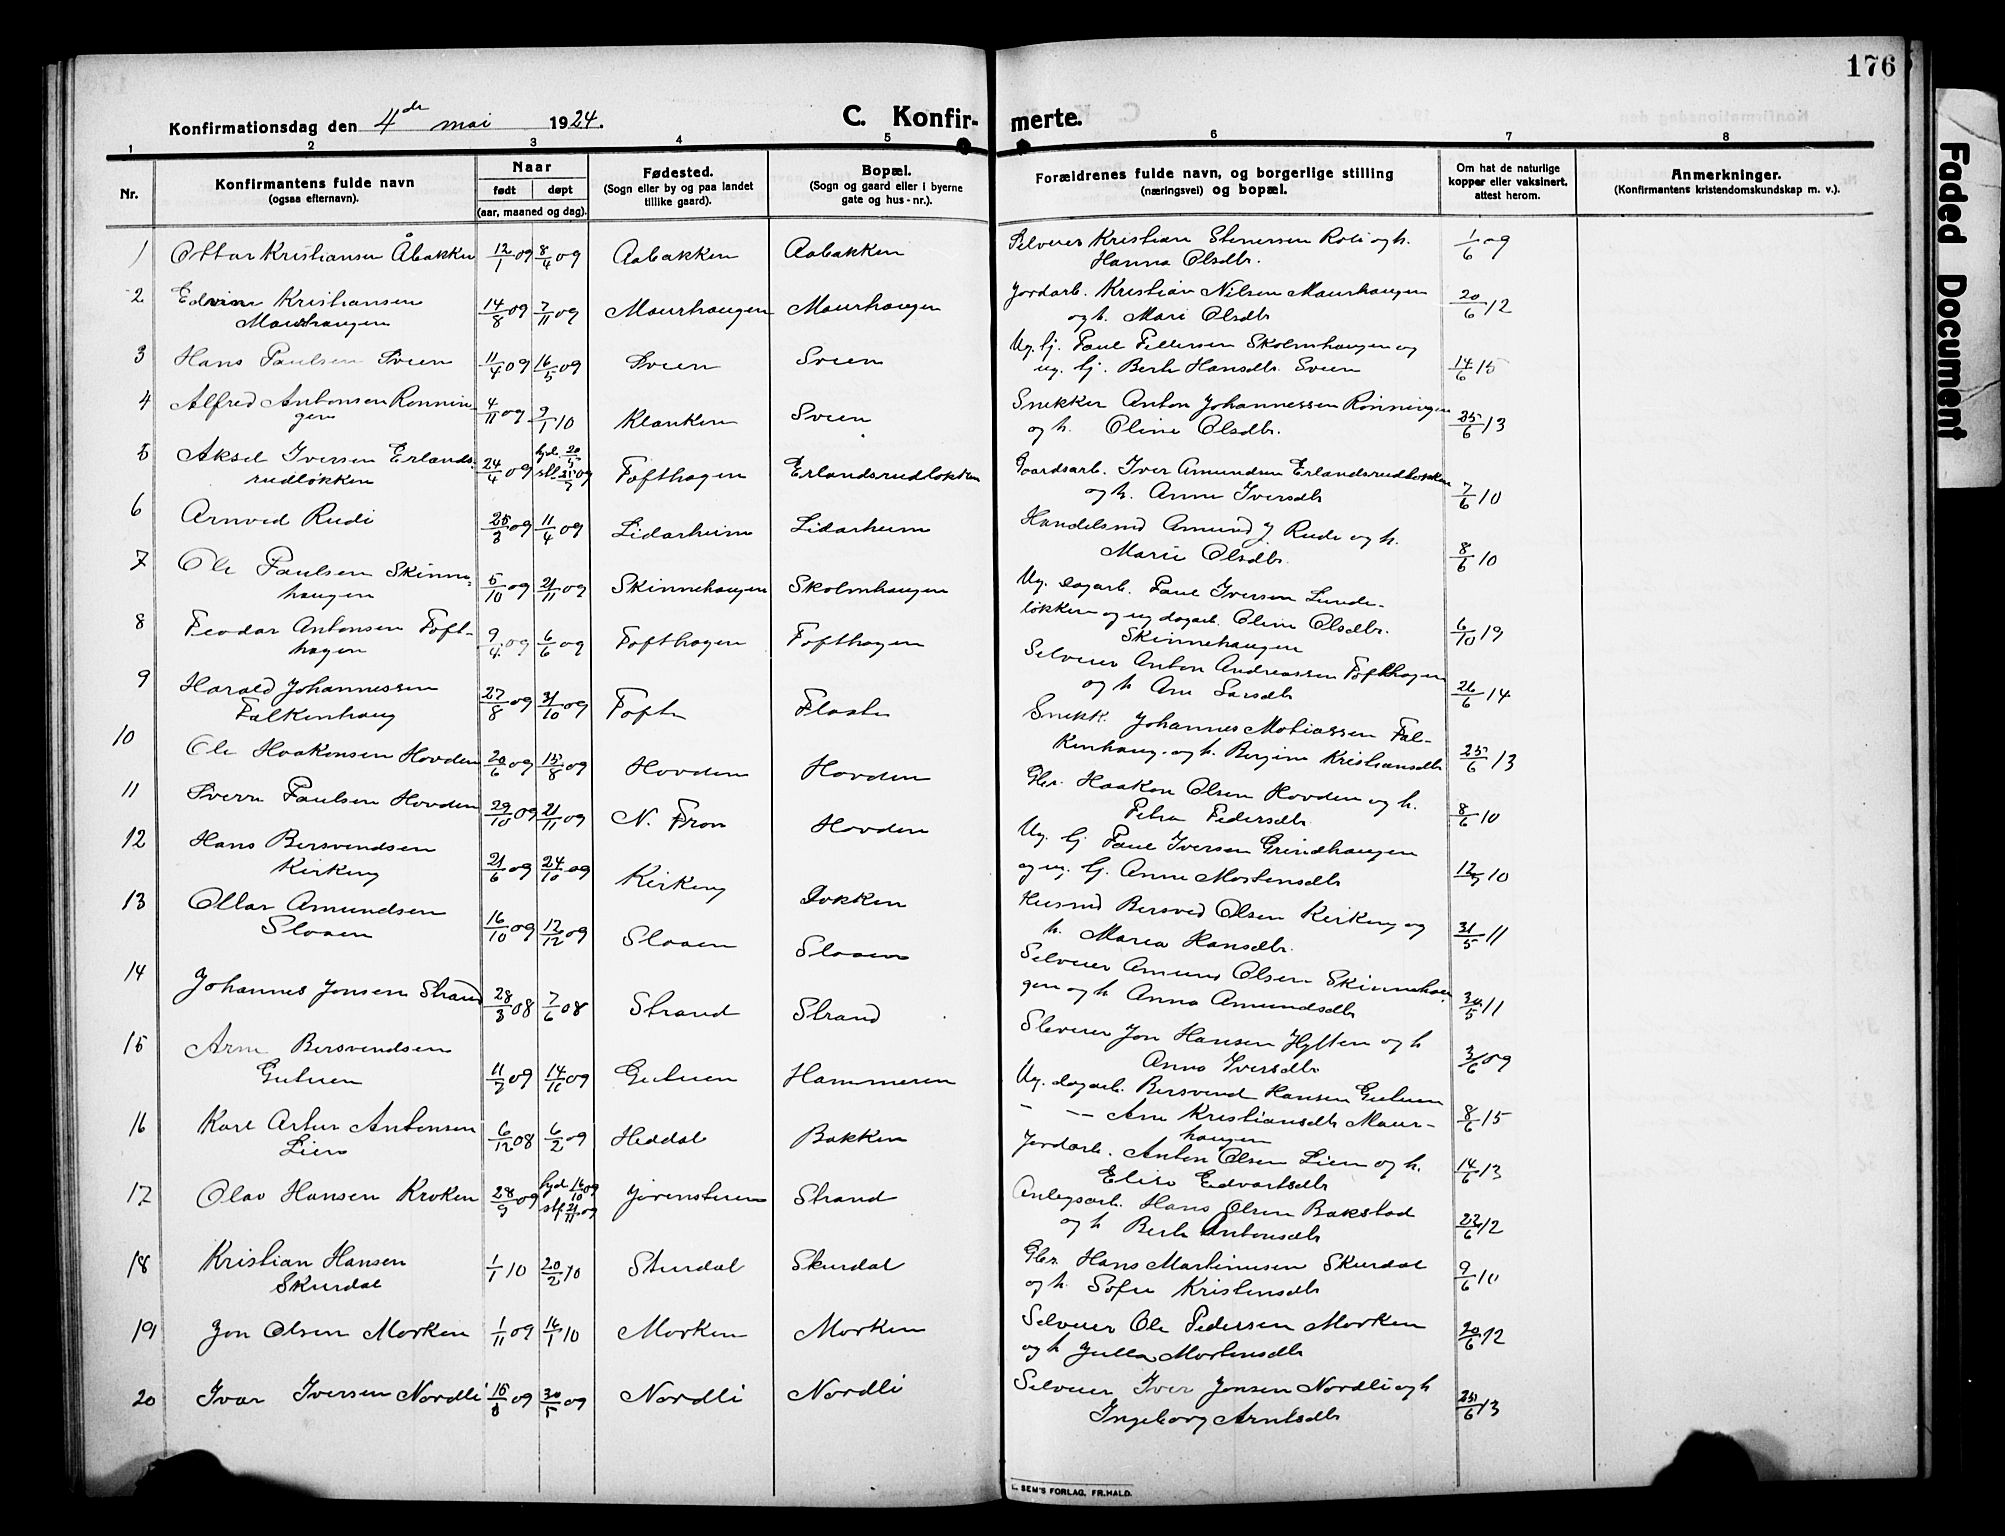 176
Faded Document
Konfirmationsdag den 4de mai 1924. C. Konfirmerte.
1 2 3 4 5 6 7 8
Nr. Konfirmantens fulde navn (ogsaa efternavn). Naar født døpt (aar, maaned og dag). Fødested. (Sogn eller by og paa landet tillike gaard). Bopæl. (Sogn og gaard eller i byerne gate og hus-nr.). Forældrenes fulde navn, og borgerlige stilling (næringsvei) og bopæl. Om hat de naturlige kopper eller vaksinert. attest herom. Anmerkninger. (Konfirmantens kristendomskundskap m. v.).
1 Ottar Kristiansen Åbakken 12/1 09 8/4 09 Aabakken Aabakken Selveier Kristian Stenersen Roli og h.
Hanna Olsdtr. 1/6 09
2 Edvin Kristiansen Maurhaugen 14/8 09 7/11 09 Maurhaugen Maurhaugen Jordarb. Kristian Nilsen Maurhaugen
og h. Mari Olsdtr 20/6 12
3 Hans Paulsen Sveen 11/4 09 16/5 09 Sveen Sveen Ug. tj. Paul Pettersen Skolmhaugen og
ug. tj. Berte Hansdtr. Sveen 14/6 15
4 Alfred Antonsen Rønningen 4/11 09 9/1 10 Klanken Sveen Snekker Anton Johannessen Rønningen
og h. Oline Olsdtr. 25/6 13
5 Aksel Iversen Erlandsrudløkken 24/4 09 Tofthagen Erlandsrudløkken Gaardsarb. Iver Amundsen Erlandsrudløkken
og h. Anne Iversdtr 7/6 10
6 Arnved Rudi 25/3 09 11/4 09 Lidarheim Lidarheim Handelsmd Amund J. Rudi og h.
Marie Olsdtr. 8/6 10
7 Ole Paulsen Skinnehaugen 5/10 09 21/11 09 Skinnehaugen Skolmhaugen Ug. dagarb. Paul Iversen Lundeløkken og ug dagarb. Oline Olsdtr.
Skinnehaugen 6/10 19
8 Feodar Antonsen Tofthagen 9/4 09 6/6 09 Tofthagen Tofthagen Selveier Anton Andreassen Tofthagen
og h Ane Larsdtr 26/6 14
9 Harald Johannessen Falkenhaug 27/8 09 31/10 09 Tofte Flaate Snekk. Johannes Matiassen Falkenhaug og h. Bergine Kristiansdtr 25/6 13
10 Ole Haakonsen Hovden 20/6 09 15/8 09 Hovden Hovden Gbr. Haakon Olsen Hovden og h.
Petra Pedersdtr. 8/6 10
11 Sverre Paulsen Hovden 29/10 09 21/11 09 N. Fron Hovden Ug. tj Paul Iversen Grindhaugen
og ug. tj. Anne Mortensdtr 10
12 Hans Bersvendsen Kirkeng 21/6 09 24/10 09 Kirkeng Dokken Husmd Bersved Olsen Kirkeng og
h. Marea Hansdtr. 31/5 11
13 Ottar Amundsen Slaaen 16/10 09 12/12 09 Slaaen Slaaen Selveier Amund Olsen Skinnehaugen og h Anna Amundsdtr 30/5 11
14 Johannes Jonsen Strand 28/3 08 7/6 08 Strand Strand Sleveier Jon Hansen Hytten og h
Anna Iversdtr 3/6 09
15 Arne Bersvendsen Gutuen 11/7 09 14/11 09 Gutuen Hammeren Ug. dagarb. Bersvend Hansen Gutuen
- -- Ane Kristiansdtr Maurhaugen 8/6 15
16 Karl Artur Antonsen Lien 6/12 08 6/2 09 Heddal Bakken Jordarb. Anton Olsen Lien og h.
Elise Edvartsdtr 14/6 13
17 Olav Hansen Kroken 28/9 09 hjd. 16/10 09 stf. 21/11 09 Jørenstuen Strand Anlegsarb. Hans Olsen Bakstad
og h Berte Antonsdtr 22/6 12
18 Kristian Hansen Skurdal 1/1 10 20/2 10 Skurdal Skurdal Gbr. Hans Martinusen Skurdal
og h. Sofie Kristensdtr 9/6 10
19 Jon Olsen Morken 1/11 09 16/1 10 Morken Morken Selveier Ole Pedersen Morken
og h Julla Mortensdtr 20/6 12
20 Ivar Iversen Nordli 09 30/5 09 Nordli Nordli Selveier Iver Jonsen Nordli og h
Ingeborg Arnesdtr 25/6 13
SEM'S FORLAG, FR.HALD.